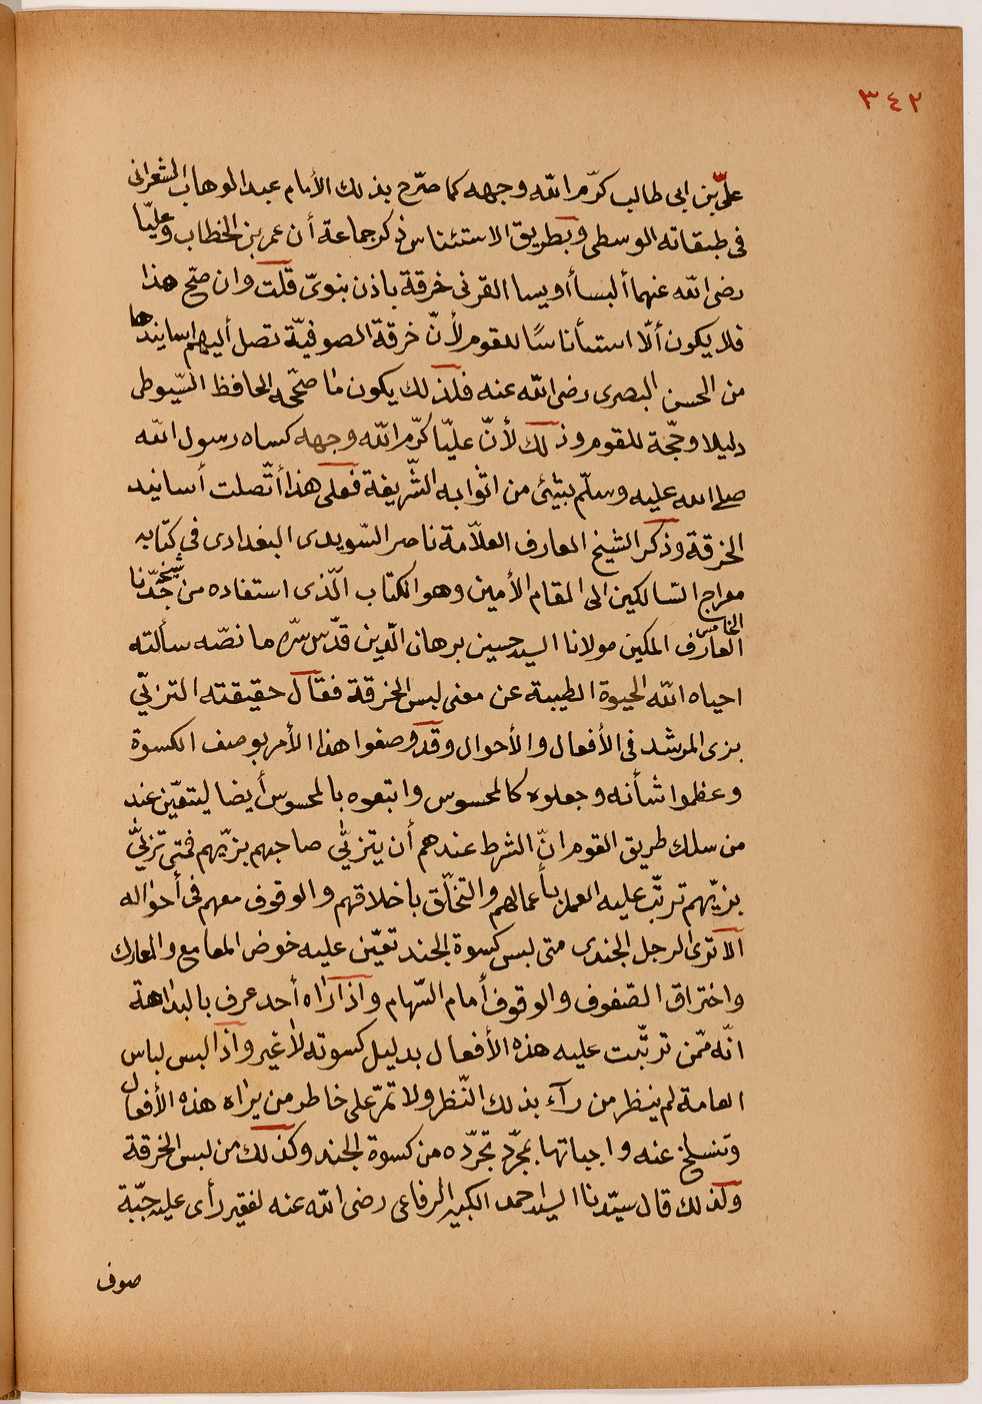 ٣٤٢
علىّ بن ابى طالب كرّم الله وجهه كما صرّح بذلك الأمام عبد الوهاب الشعرانى
فى طبقاته الوسطى وبطريق الاستئناس ذكر جماعة أن عمر بن الخطاب وعليّا
رضى الله عنهما ألبسا أويسا القرنى خرقة باذن نبوىّ قلت وان صحّ هذا
فلا يكون ألّا استأناسًا للقوم لأنّ خرقة الصوفيّة تصل أليهم اسانيدها
من الحسن البصرى رضى الله عنه فلذلك يكون ما صحّحه الحافظ السّيوطى
دليلا وحجّة للقوم وذلك لأنّ عليّا كرّم الله وجهه كساه رسول الله
صلى الله عليه وسلّم بشيئ من اثوابه الشّريفة فعلى هذا أتّصلت أسانيد
الخرقة وذكر الشيخ العارف العلاّمة ناصر السّويدى البغدادى فى كتابه
معراج السّالكين الى المقام الأمين وهو الكتاب الّذى استفاده من شيخه جدّنا
الخامس
العارف المكين مولانا السيد حسين برهان الدّين قدّس سرّه ما نصّه سألته
احياه الله الحيوة الطيبة عن معنى لبس الخرقة فقال حقيقته التزىّ
بزى المرشد فى الأفعال والأحوال وقد وصفوا هذا الأمر بوصف الكسوة
وعظموا شأنه وجعلوه كالمحسوس واتبعوه بالمحسوس أيضا ليتعيّن عند
من سلك طريق القوم انّ الشرط عندهم أن يتزيّى صاحبهم بزيّهم فمتى تزيّى
بزيّهم ترتّب عليه العمل بأعمالهم والتخلّق باخلاقهم والوقوف معهم فى أحواله
الا ترى الرجل الجندى متى لبس كسوة الجند تعيّن عليه خوض المعامع والمعارك
واختراق الصّفوف والوقوف أمام السّهام واذا رآه أحد عرف بالبداهة
انّه ممّن ترتّبت عليه هذه الأفعال بدليل كسوته لا غير واذا لبس لباس
العامة لم ينظر من رآء بذلك النّظر ولا تمرّ على خاطر من يراه هذه الأفعال
وتنسلخ عنه واجباتها بمجرّد تجرّده من كسوة الجند وكذلك من لبس الخرقة
وكذلك قال سيّدنا السيد احمد الكبير الرفاعى رضى الله عنه لفقير رأى عليه جبّة
صوف